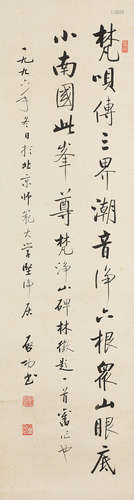 梵唄傳三界潮音淨六根眾山眼底
小南國此峯尊梵淨山碑林徵題一首舊作也
一九九六年冬日於北京師範大學堅淨居
啟功書